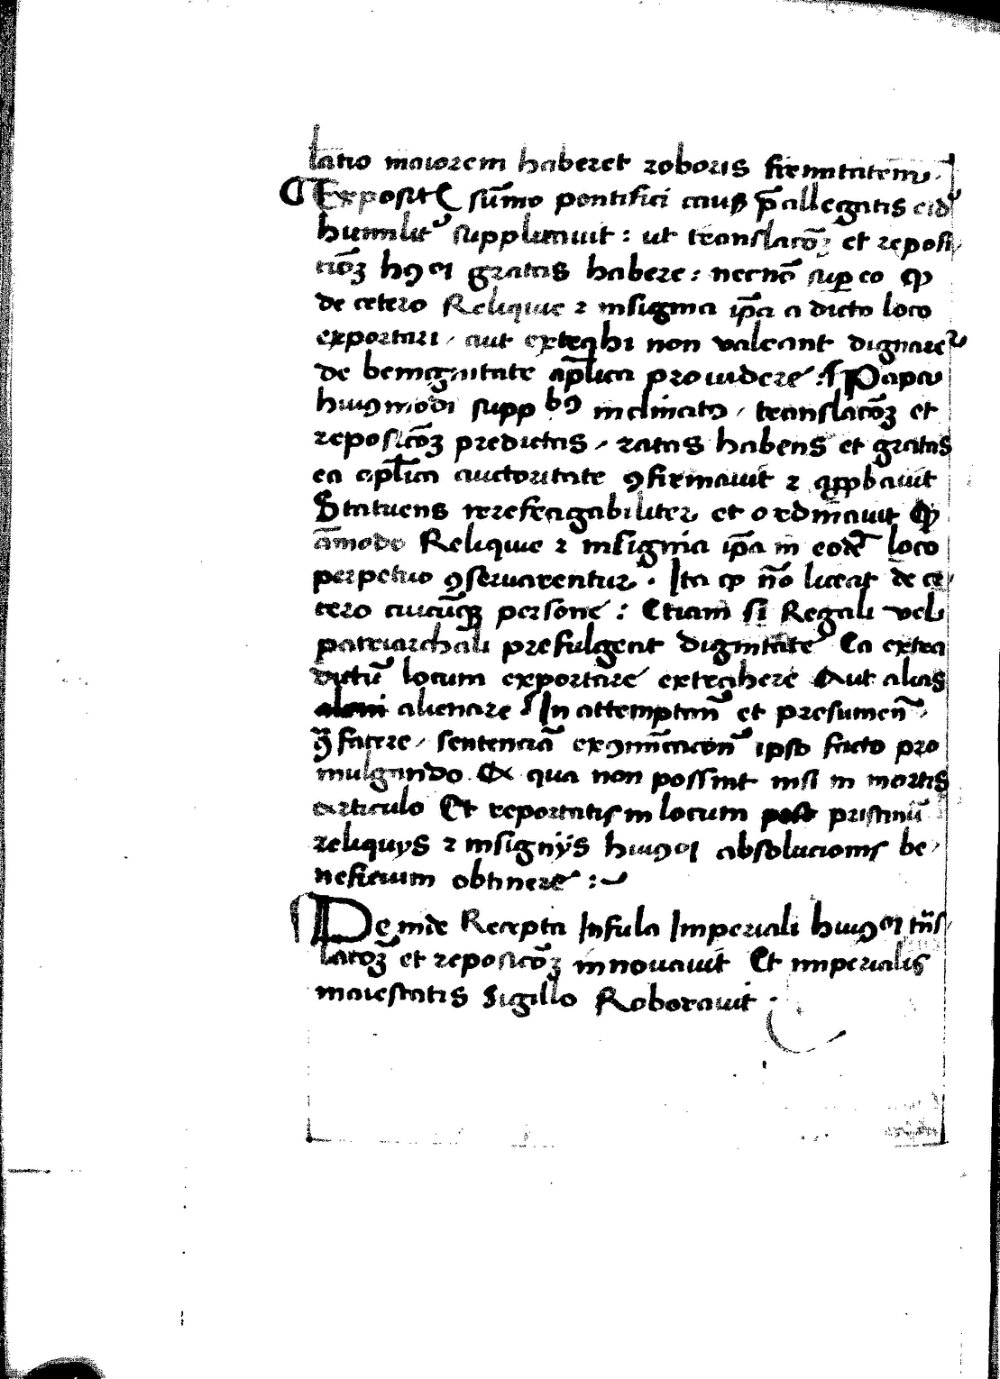 latio maiorem haberet roboris firmitatem.
¶ Exposit(is) sūmo pontifici causis p̄allegatis eidē
humilit(er) supplicauit : ut translacōꝫ et reposi/
ciōꝫ hꝯꝰi gratas habere : necnō sup eo ꝙ
de cetero Reliquie ⁊ insignia ip̄a a dicto loco
exportari / aut extrahi non valeant dignaret(ur)
de benignitate ap̄lica prouidere : ¶ Papa
huiꝯmodi suppbꝯ inclinatꝯ / translacōꝫ et
reposicōꝫ predictas / ratas habens et gratas
ea ap̄lica auctoritate ꝯfirmauit ⁊ app̱bauit
Statuens irrefragabiliter et ordīauit ꝙ
āmodo Reliquie ⁊ insignia ip̄a in eodē loco
perpetuo ꝯseruarentur . Ita ꝙ nō liceat de ce/
tero cuicūqꝫ persone : Etiam si Regali vel
patriarchali prefulgeat dignitate Ea extra
dictū locum exportare extrahere Aut alias
alienare ¶ In attemptan̄ et presumen̄ /
ꝯ̄facere / sentenciā exꝯmīcacon̄ ipso facto pro
mulgando Ex qua non possint nisi in mortis
articulo Et reportatis in locum pristinū
reliquijs ⁊ insignijs huiꝯꝰi absolucionis be/
neficium obtinere :
¶ Deinde Recepta Infula Imperiali huiꝯꝰi trīs/
lacōꝫ et reposicōꝫ innouauit Et imperialis
maiestatis Sigillo Roborauit .